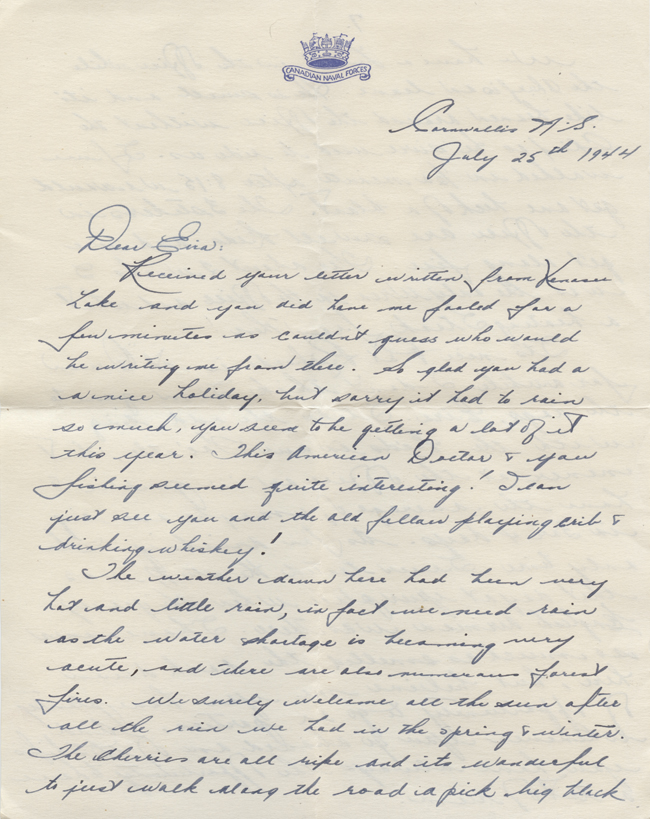 CANADIAN NAVAL FORCES
Cornwallis N.S.
July 25th 1944
Dear Eira:
Received your letter written from
Lake and you did have me fooled for a
few minutes as couldn't guess who would
be writing me from there. So glad you had a
a nice holiday, but sorry it had to rain
so much, you seem to be getting a lot of it
this year. This American Doctor & you
fishing seemed quite interesting! I can
just see you and the old fellow playing crib &
drinking whiskey!
The weather down here had been very
hot and little rain, in fact we need rain
as the water shortage is becoming very
acute, and there are also numerous forest
fires. We surely welcome all the sun after
all the rain we had in the spring & winter.
The Cherries are all ripe and its wonderful
to just walk along the road & pick big black